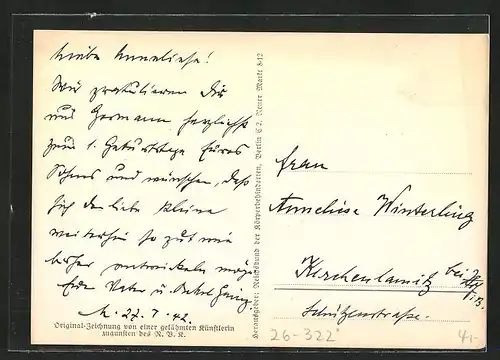 Liebe Anneliese!
Wir gratulieren Dir
und Hermann herzlichst
zum 1. Geburtstage Eures
Sohnes und wünschen, daß
sich der liebe Kleine
weiterhin so gut wie
bisher entwickeln möge
Vetter u.
27.7.42
Original-Zeichnung von einer gelähmten Künstlerin
zugunsten des R. B. K.
Herausgeber: Reichsbund der Körperbehinderten, Berlin C 2, Neuer Markt 8-12
Frau
Anneliese Winterling
Kirchenlamitz bei
Schützenstraße.
26-322
4,-